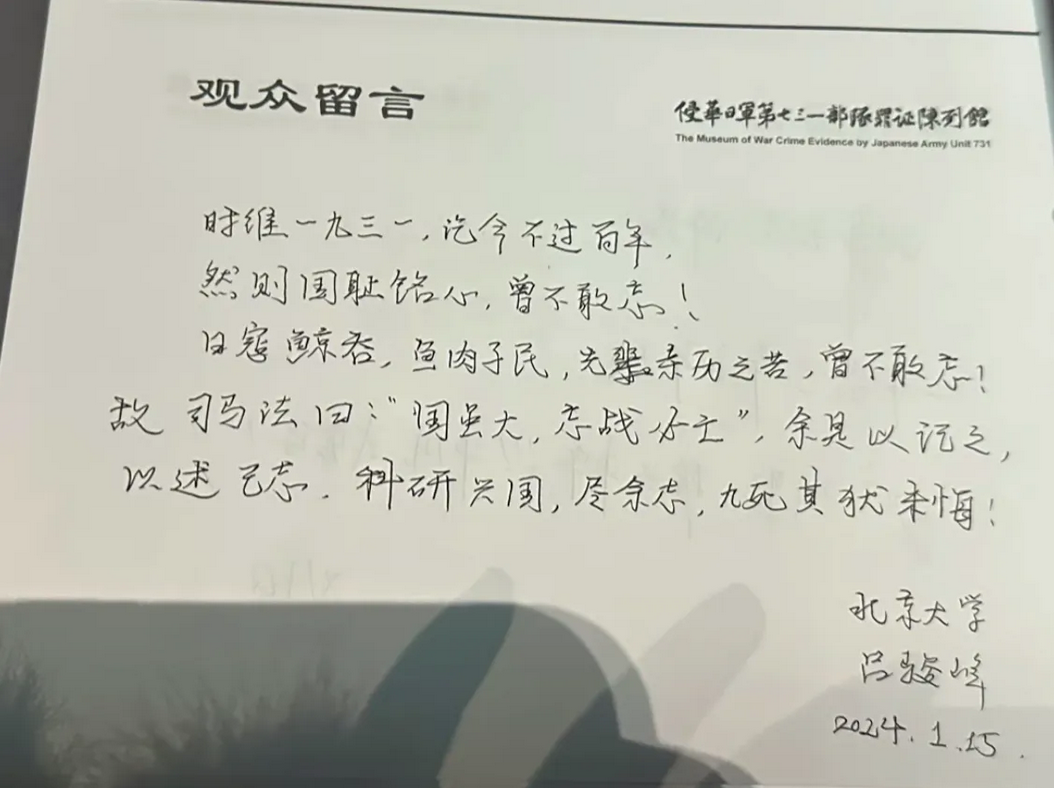 观众留言
侵華日軍第七三一部隊罪证陳列館
The Museum of War Crime Evidence by Japanese Army Unit 731
时维一九三一，讫今不过百年，
然则国耻铭心，曾不敢忘！
日寇鲸吞，鱼肉子民，先辈亲历之苦，曾不敢忘！
故司马法曰：“国虽大，忘战必亡”，余是以记之，
以述己志．科研兴国，尽余志，九死其犹未悔！
北京大学
吕骏峰
2024.1.15.